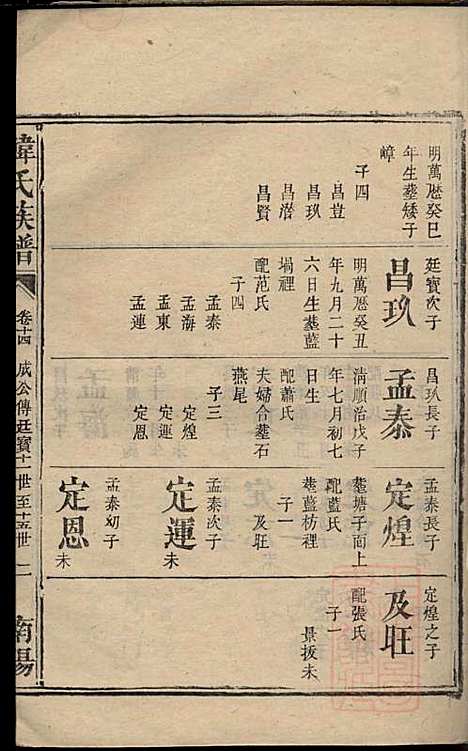 明萬厯癸巳
年生塟矮子
嶂
子四
昌荳
昌玖
昌濳
昌賢
廷寳次子
昌玖
明萬厯癸丑
年九月二十
六日生塟藍
塌裡
配范氏
子四
孟泰
孟海
孟東
孟連
昌玖長子
孟泰
淸順治戊子
年七月初七
日生
配蕭氏
夫婦合塟石
燕尾
子三
定煌
定運
定恩
孟泰長子
定煌
塟塘子面上
配藍氏
塟藍枋裡
子一
及旺
孟泰次子
定運
未
孟泰幼子
定恩
未
定煌之子
及旺
配張氏
子一
景拔未
氏族譜
卷十四
成公傳廷寳十一世至十五世
二
南陽